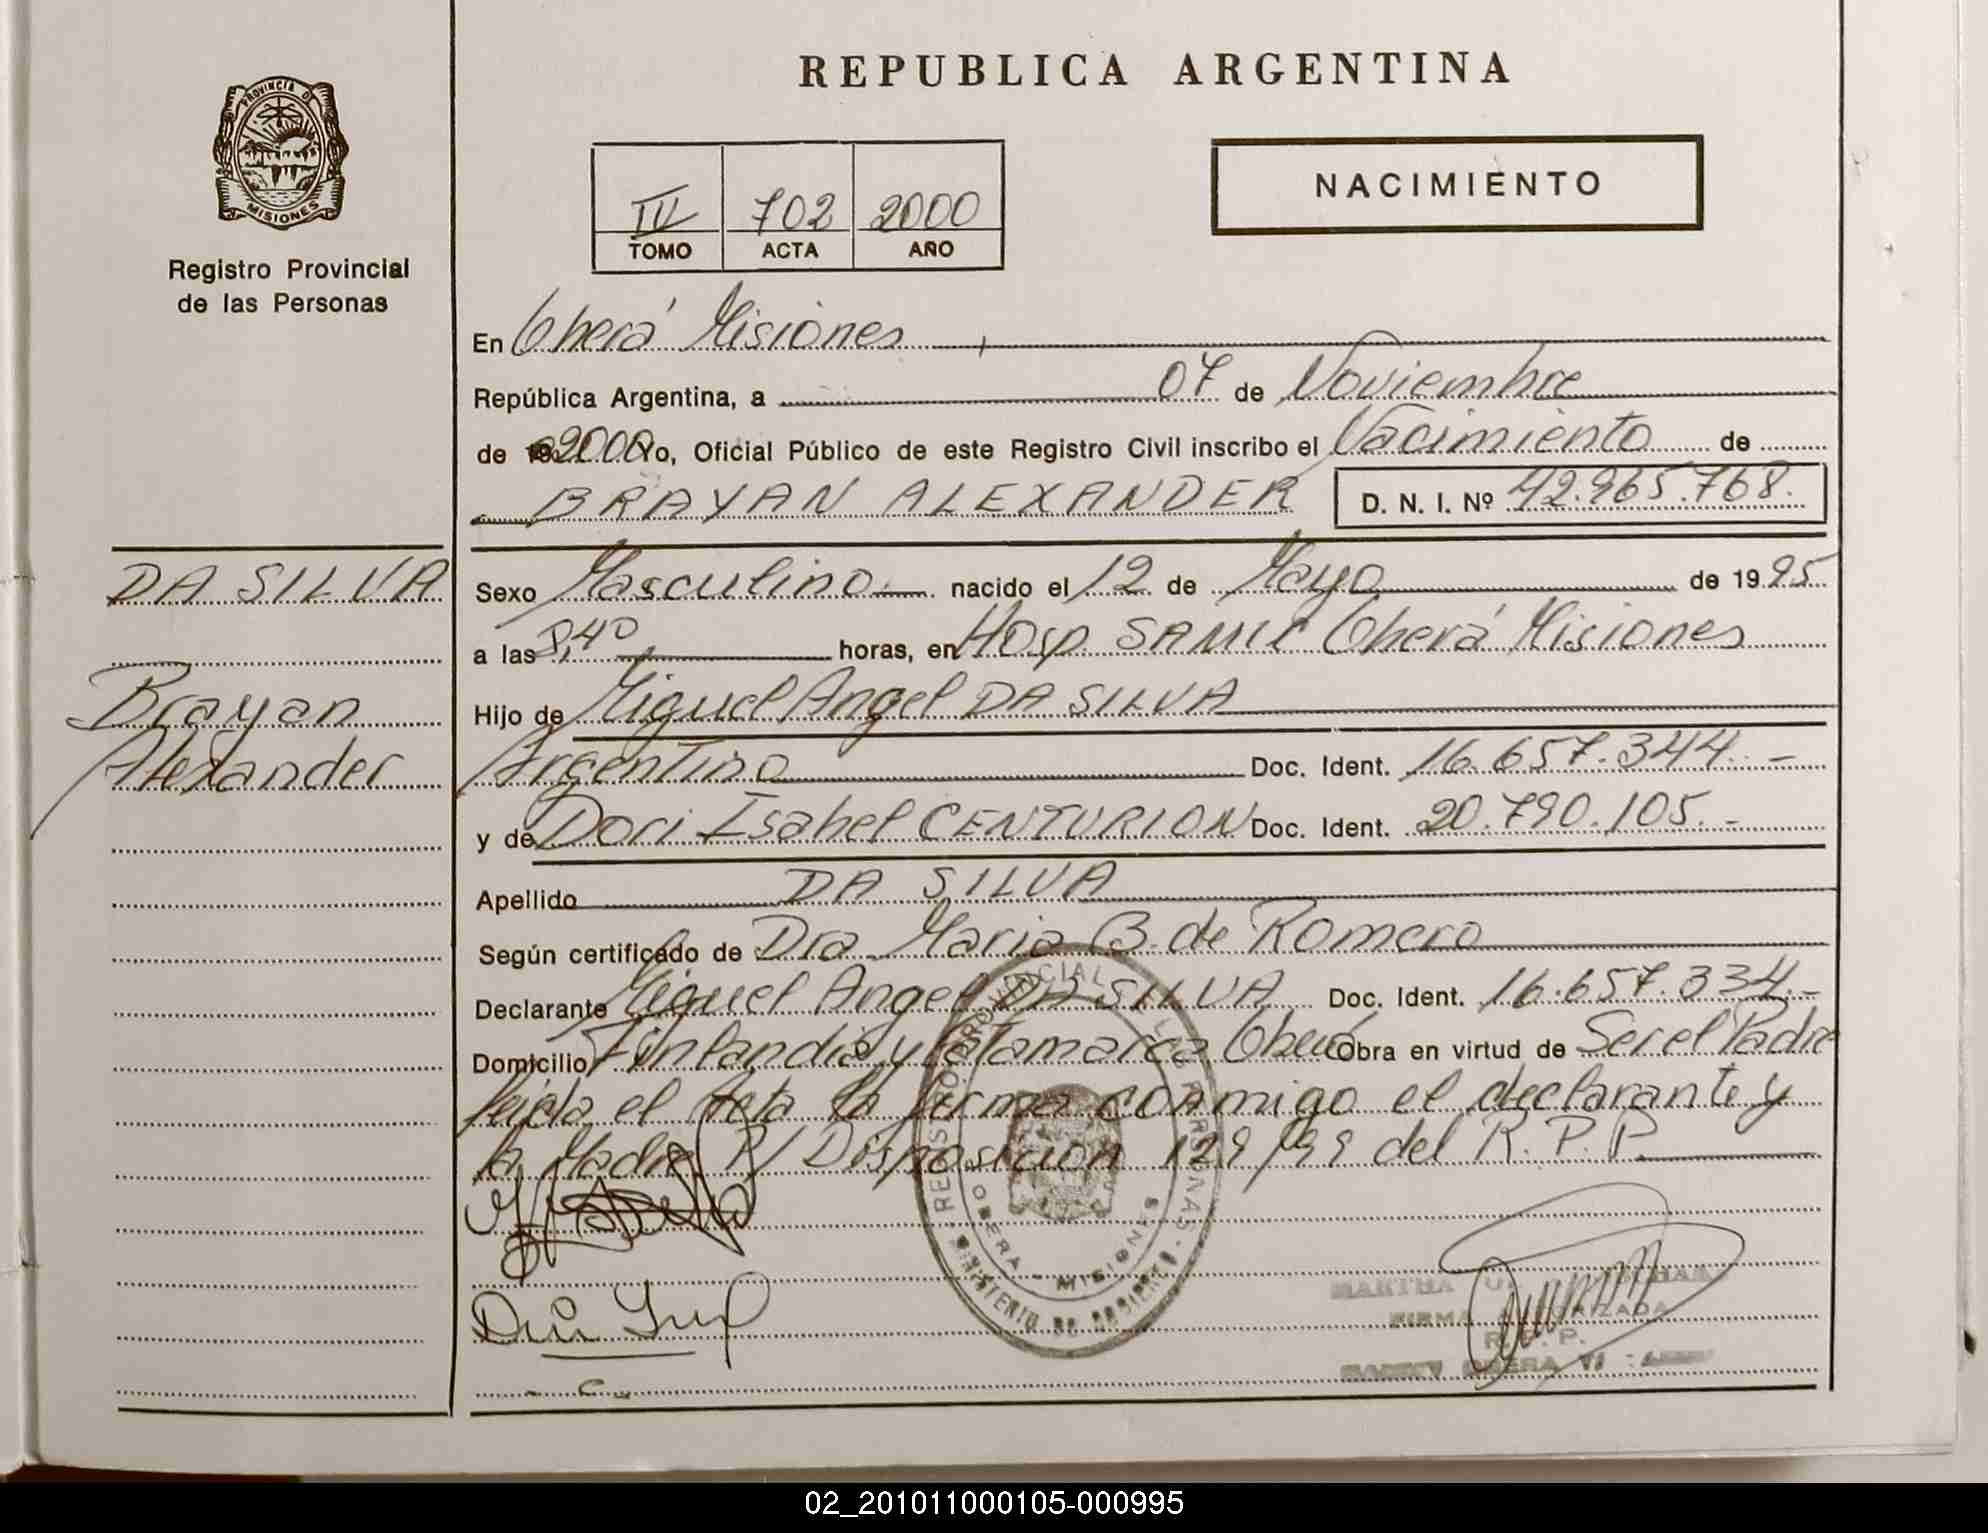 REPUBLICA ARGENTINA
PROVINCIA DE
MISIONES
Registro Provincial
de las Personas
NACIMIENTO
702 2000
TOMO ACTA AÑO
En Oberá Misiones
República Argentina, a 07 de Noviembre
de 2000 Yo, Oficial Público de este Registro Civil inscribo el Nacimiento de
BRAYAN ALEXANDER D. N. I. Nº 42.965.768.
DA SILVA
Brayan
Alexander
Sexo Masculino nacido el 12 de Mayo de 1995
a las 8,40 horas, en Hosp. SAMIC Oberá Misiones
Hijo de Miguel Angel DA SILVA
Argentino Doc. Ident. 16.657.344.-
y de Dori Isabel CENTURION Doc. Ident. 20.790.105.-
Apellido DA SILVA
Según certificado de Dra Maria B. de Romero
Declarante Miguel Angel DA SILVA Doc. Ident. 16.657.334.-
Domicilio Finlandia y Catamarca Oberá Obra en virtud de Ser el Padre
leída el Acta la firma conmigo el declarante y
la Madre P/ Disposicion 129/99 del R.P.P.
REGISTRO PROVINCIAL DE LAS PERSONAS
OBERA - MISIONES
MINISTERIO DE GOBIERNO
MARTHA
FIRMA AUTORIZADA
R. P. P.
OBERA
02_201011000105-000995